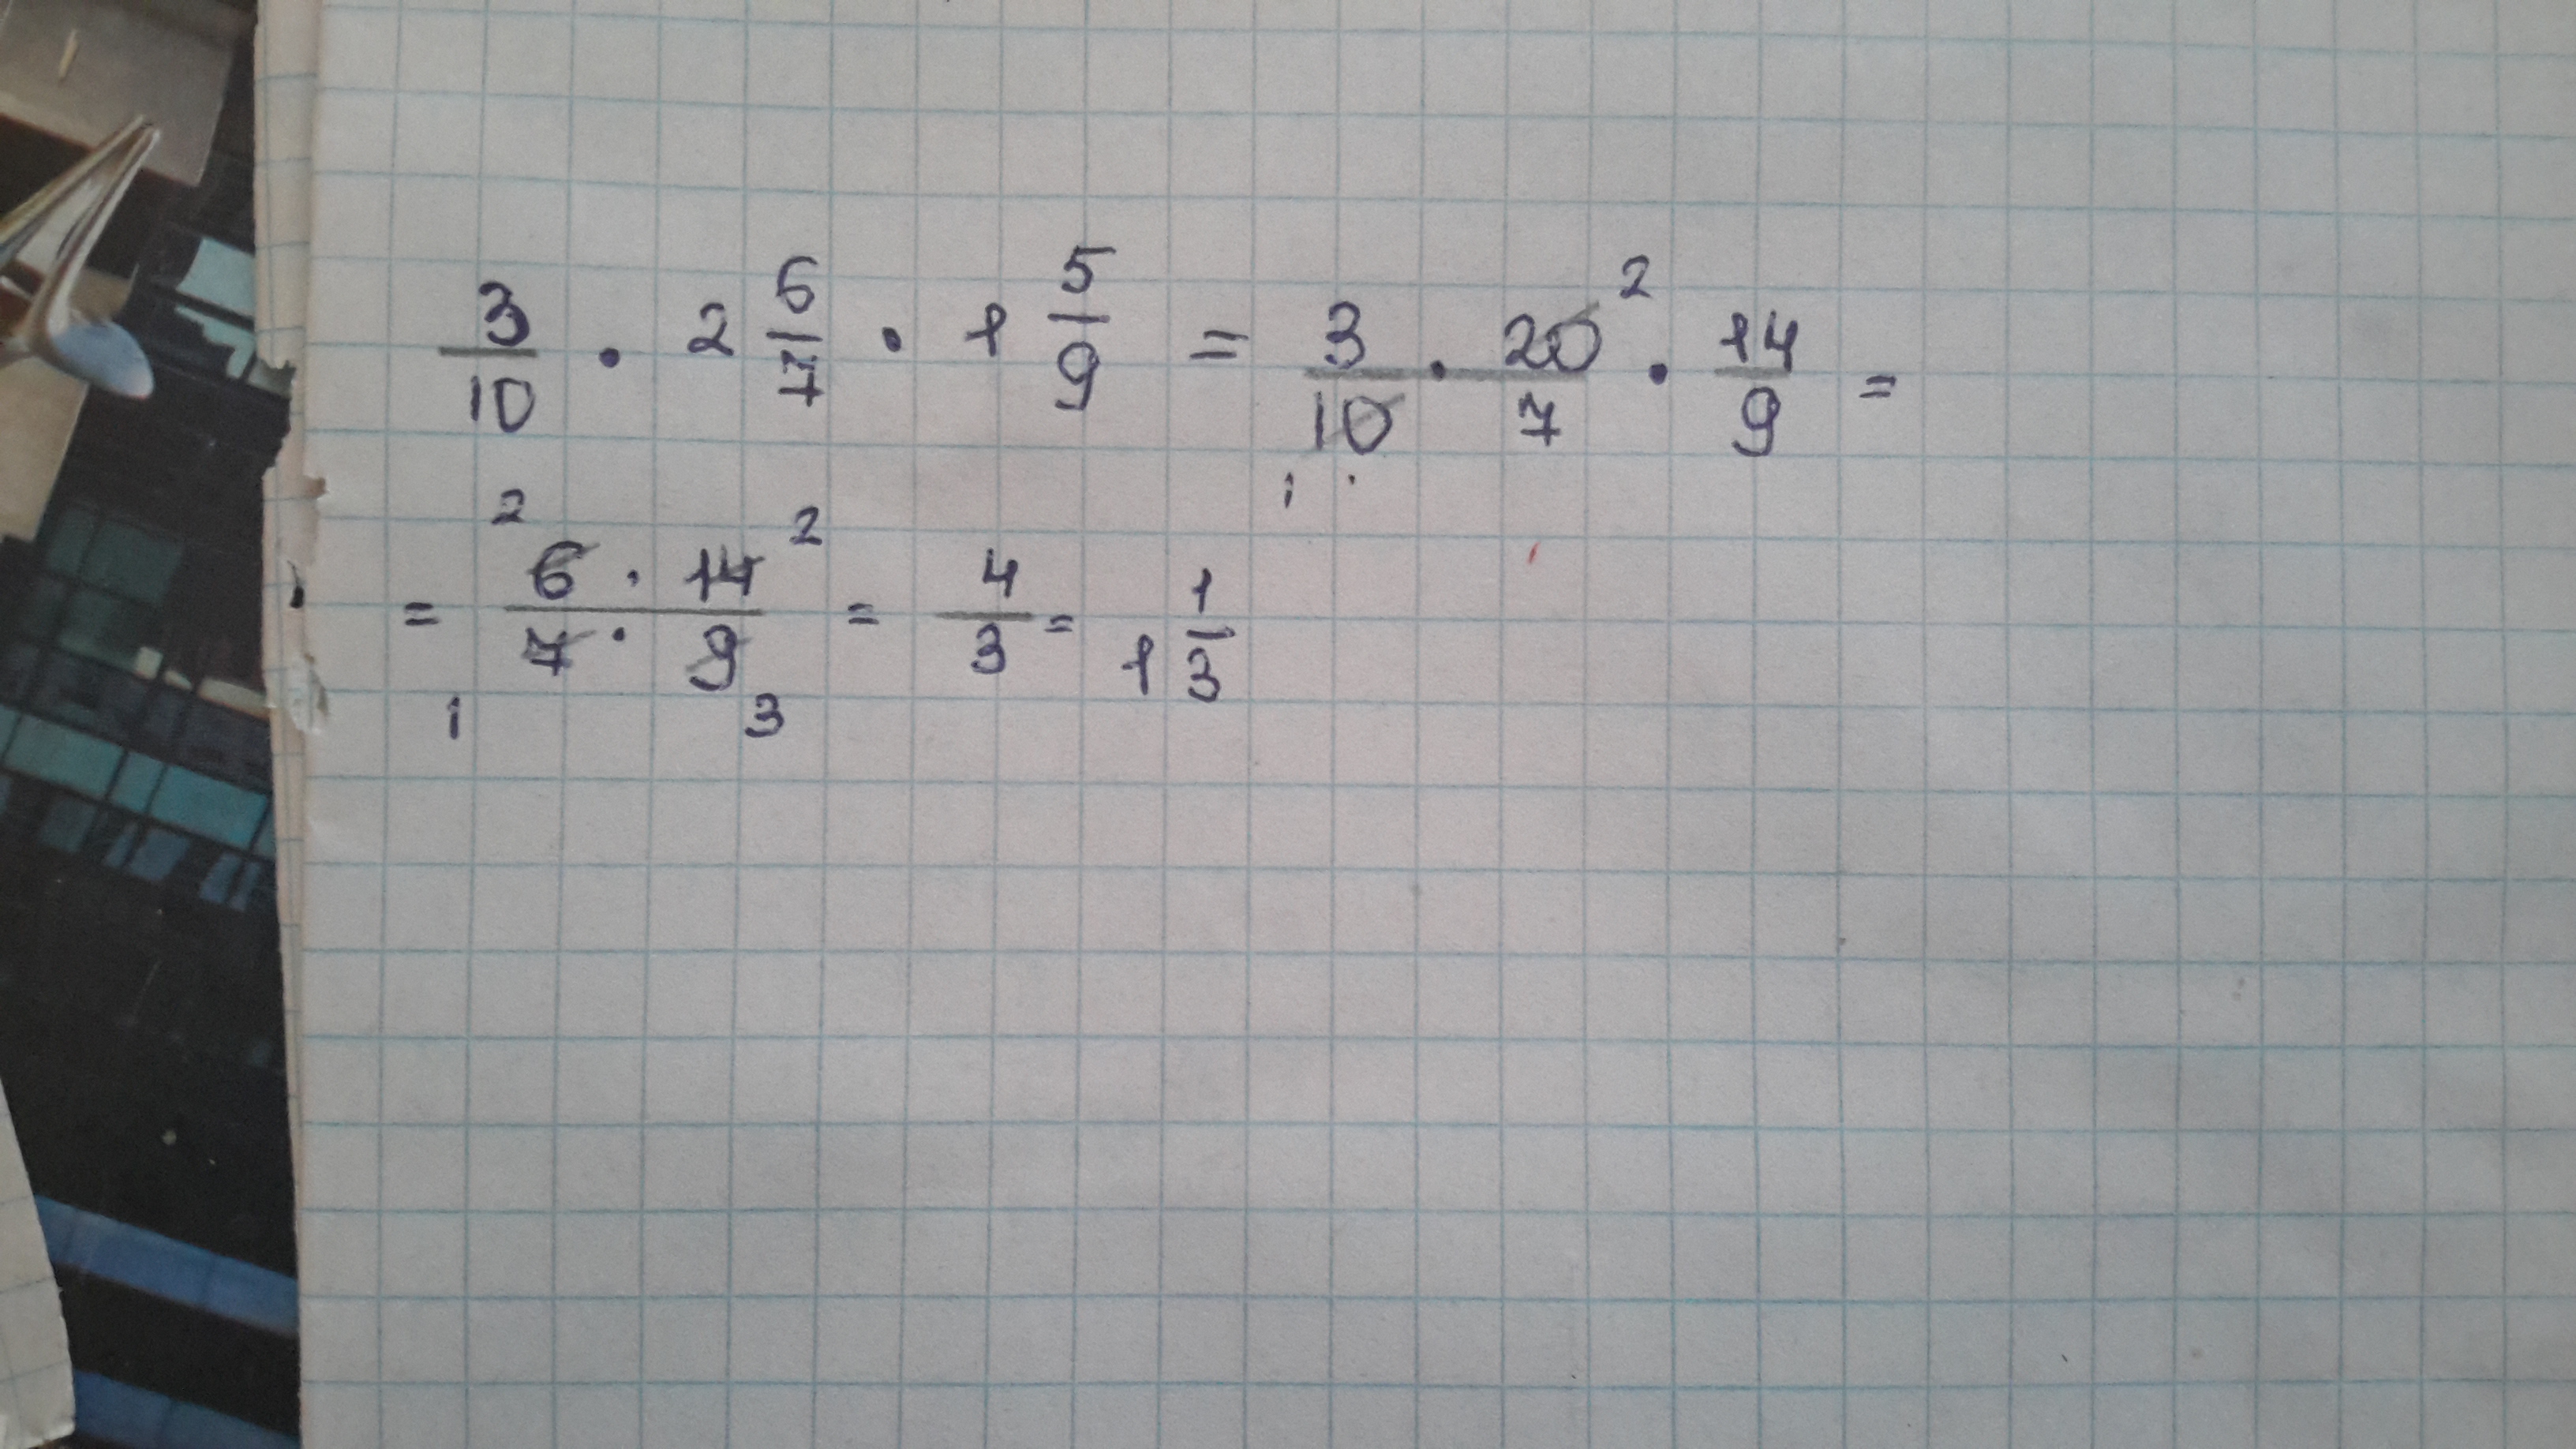 3/10 · 2 6/7 · 1 5/9 = 3/10 1 · 20 2/7 · 14/9 =
= 2 6 · 14 2 / 1 7 · 9 3 = 4/3 = 1 1/3